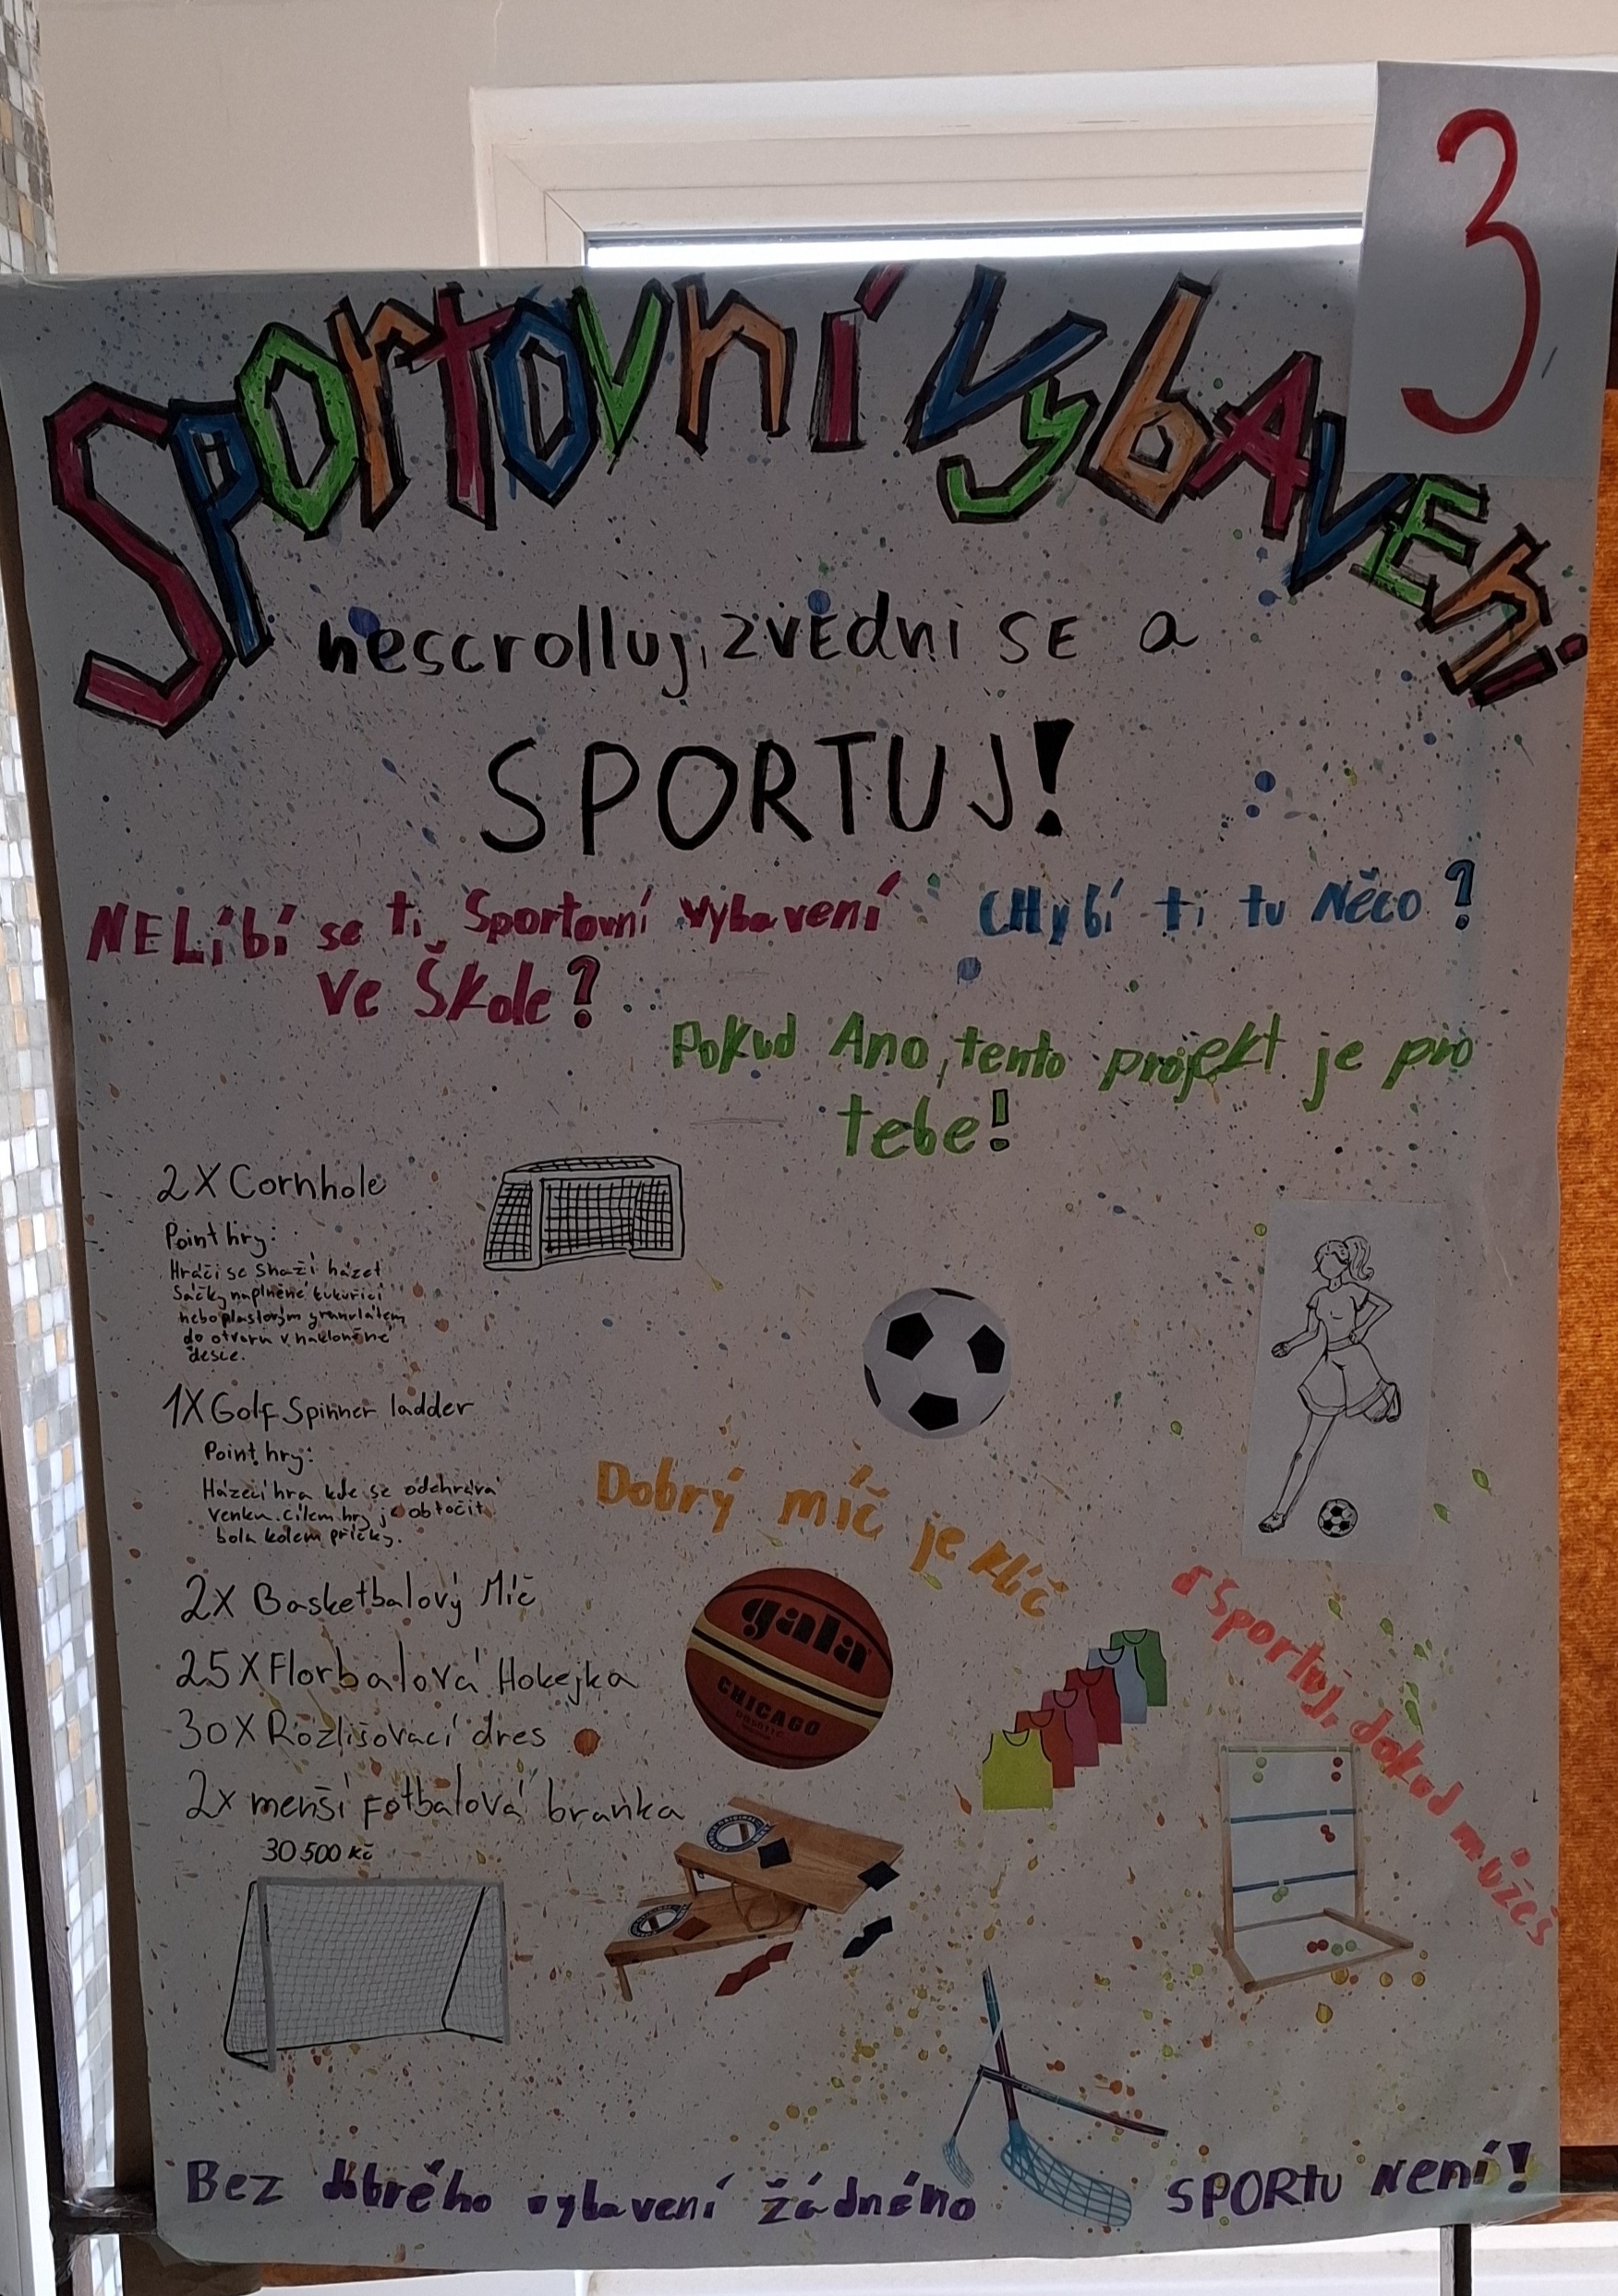 3
Sportovní VybAVEní
nescrolluj, zvEdni SE a
SPORTUJ!
NELíbí se ti Sportovní vybavení
ve Škole?
CHybí ti tu Něco?
Pokud Ano, tento projekt je pro
tebe!
2X Cornhole
Point hry:
Hráči se snaží házet
Sáčky naplněné kukuřicí
nebo plastovým granulátem
do otvoru v nakloněné
desce.
1X Golf Spinner ladder
Point hry:
Házecí hra kde se odehrává
venku. Cílem hry je obtočit
bola kolem příčky.
Dobrý míč je klíč
a Sportuj, dokud můžeš
2X Basketbalový Míč
25X Florbalová Hokejka
30X Rozlišovací dres
2X menší Fotbalová branka
30 500 Kč
gala
CHICAGO
Bez dobrého vybavení žádného SPORtu NENí!